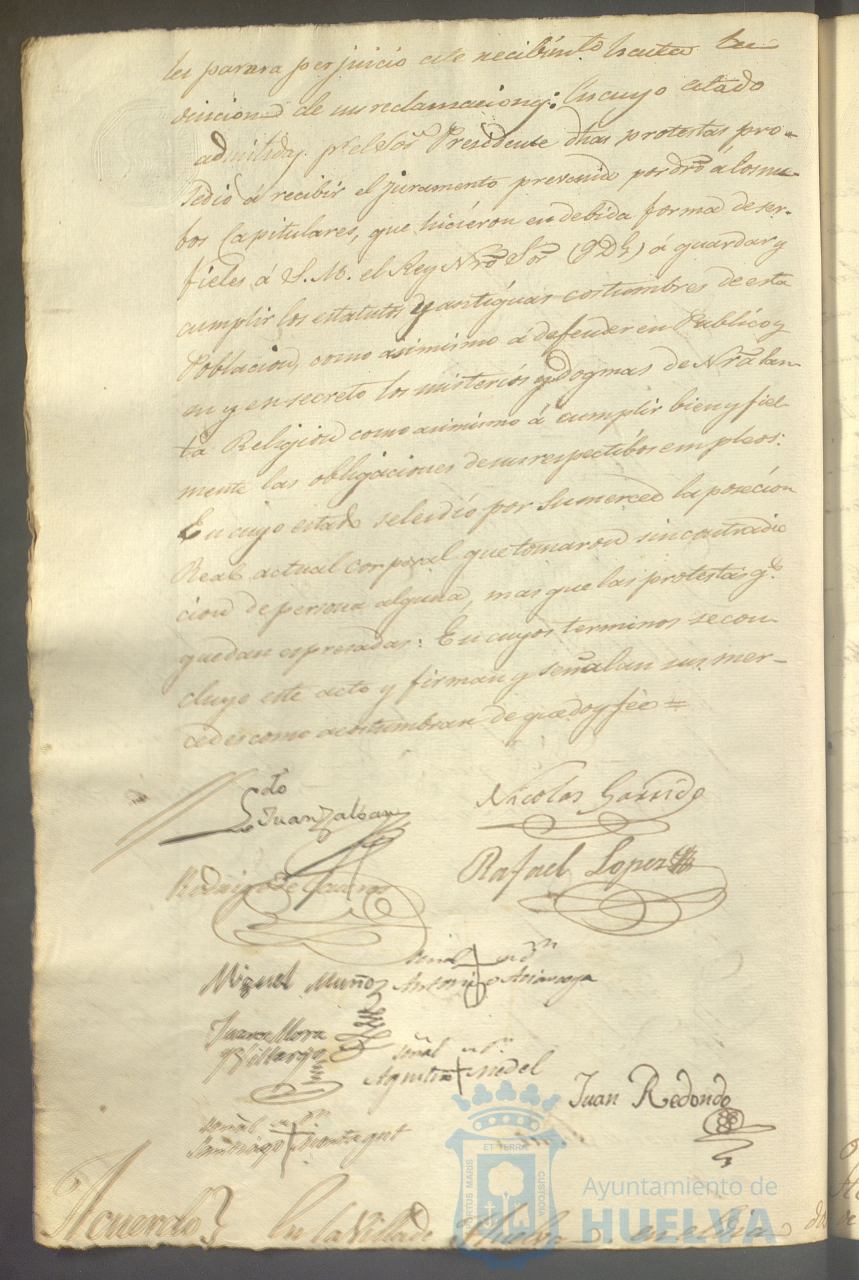 les parara perjuicio de le recibimto hasta la de
cicion de sus reclamaciones: En cuyo estado
admitidas pr el Sor Presidente dhas protestas pro=
sedio á recibir el juramento prevenido por dro á los nue-
bos Capitulares, que hicieron en debida forma de ser-
fieles á S. M. el Rey Nro Sor (q D g) á guardar y
cumplir los estatutos y antiguas costumbres de esta
Poblacion, como asimismo á defender en Publico y
en secreto los misterios y dogmas de Nra San-
ta Religion como asimismo á cumplir bien y fiel-
mente las obligaciones de sus respectibos empleos:
En cuyo estado se les dió por su merced la posecion
Real actual corporal que tomaron sin contradic
cion de persona alguna, mas que las protestas qe
quedan espresadas: En cuyos terminos se con-
cluyo este acto y firman y señalan sus mer-
cedes como acostumbran de que doy fée =
Juan Zalvan
Nicolas Garrido
Rodrigo de
Rafael Lopez
Miguel Muñoz
señal de Dn
Antonio
Juan Mora
Villarejo
señal de Dn
Agustin Medel
Juan Redondo
señal de Dn
Santiago Montagut
Acuerdo} En la Villa de Huelva en el dia
ET TERRA
PORTUS MARIS
CUSTODIA
Ayuntamiento de
HUELVA